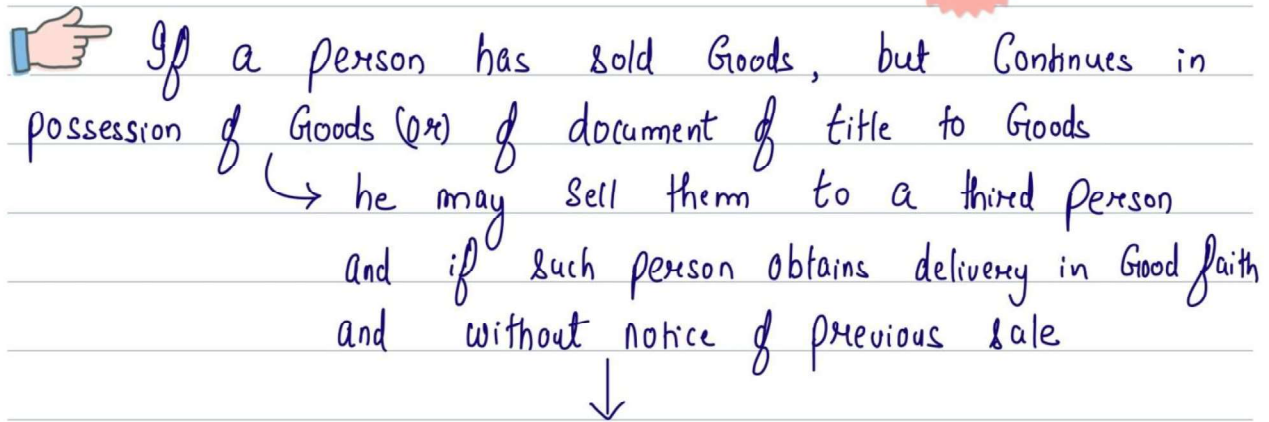 If a person has sold Goods, but Continues in
possession of Goods (or) of document of title to Goods
he may sell them to a third person
and if such person obtains delivery in Good faith
and without notice of previous sale